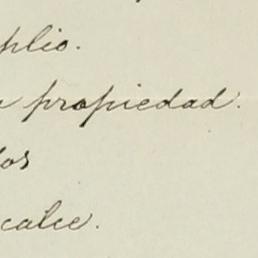 plio.
propiedad.
los
calce.